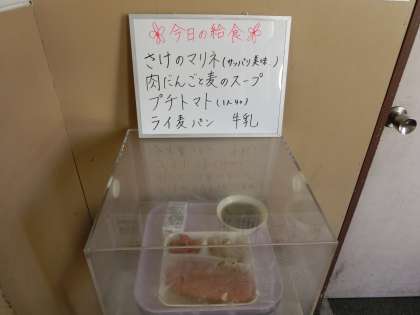 今日の給食
さけのマリネ(サッパリ美味、)
肉だんごと麦のスープ
プチトマト(1人4コ)
ライ麦パン 牛乳